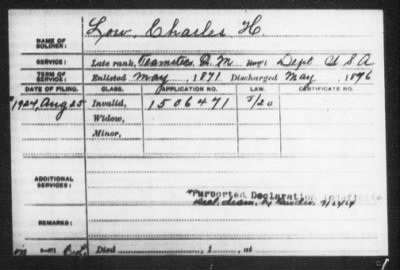 Low, Charles H.
NAME OF
SOLDIER:
SERVICE: Late rank, Teamster, Q M Dept U S A
TERM OF
SERVICE: Enlisted May, 1871 Discharged May, 1896
DATE OF FILING. CLASS. APPLICATION NO. LAW. CERTIFICATE NO.
1924, Aug 25 Invalid, 1506471 5/20
Widow,
Minor,
ADDITIONAL
SERVICES:
"Purported Declaration
REMARKS:
Died, 1, at